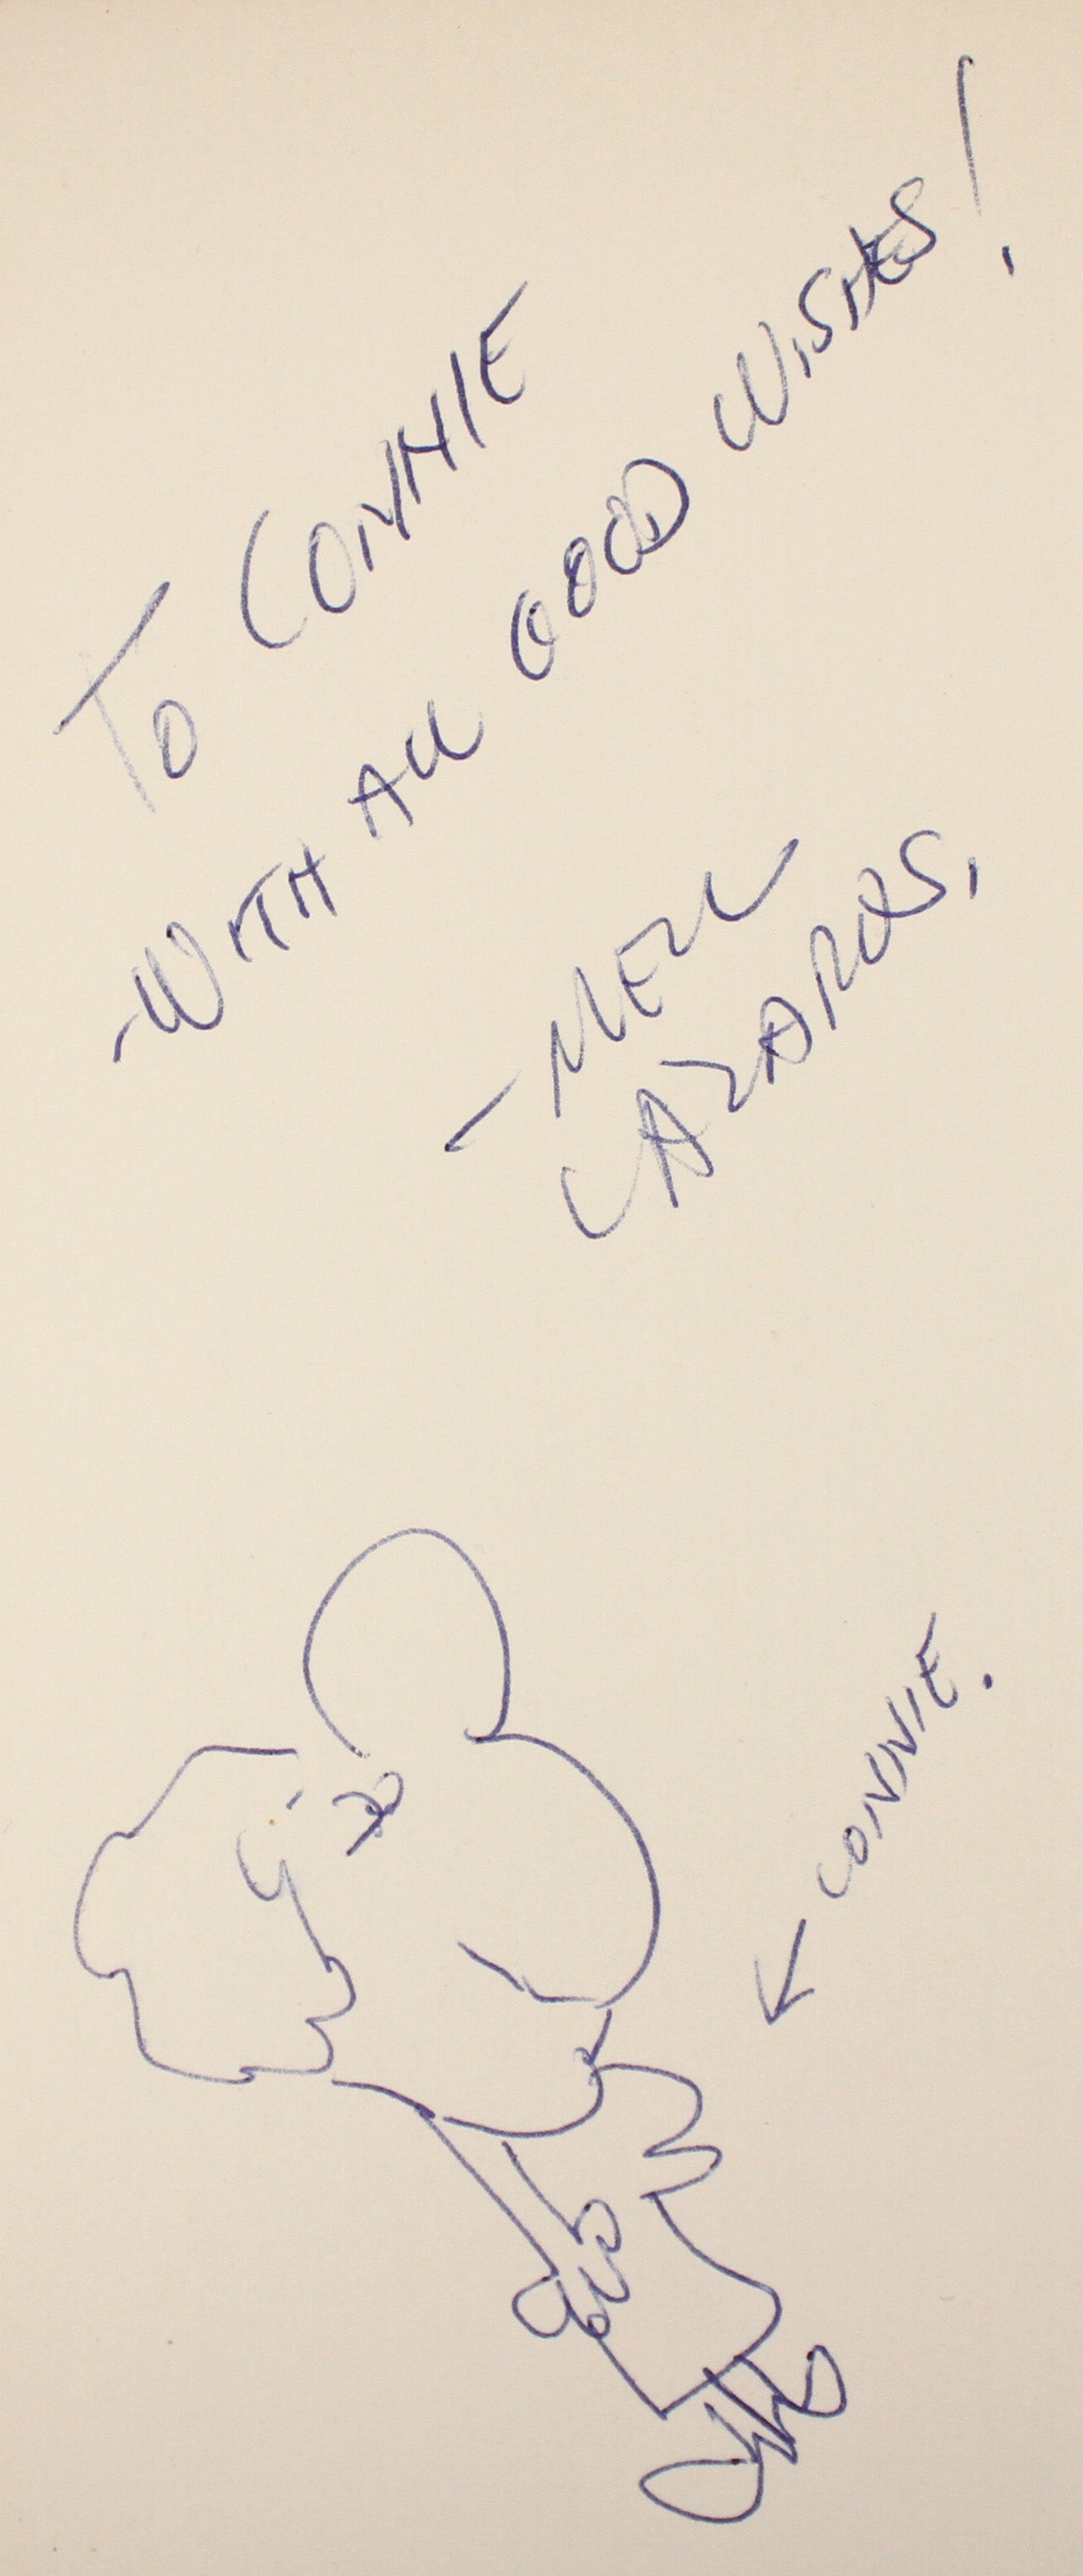 To CONNIE
-WITH ALL GOOD WISHES!
- MELL
LAZARUS.
← CONNIE.